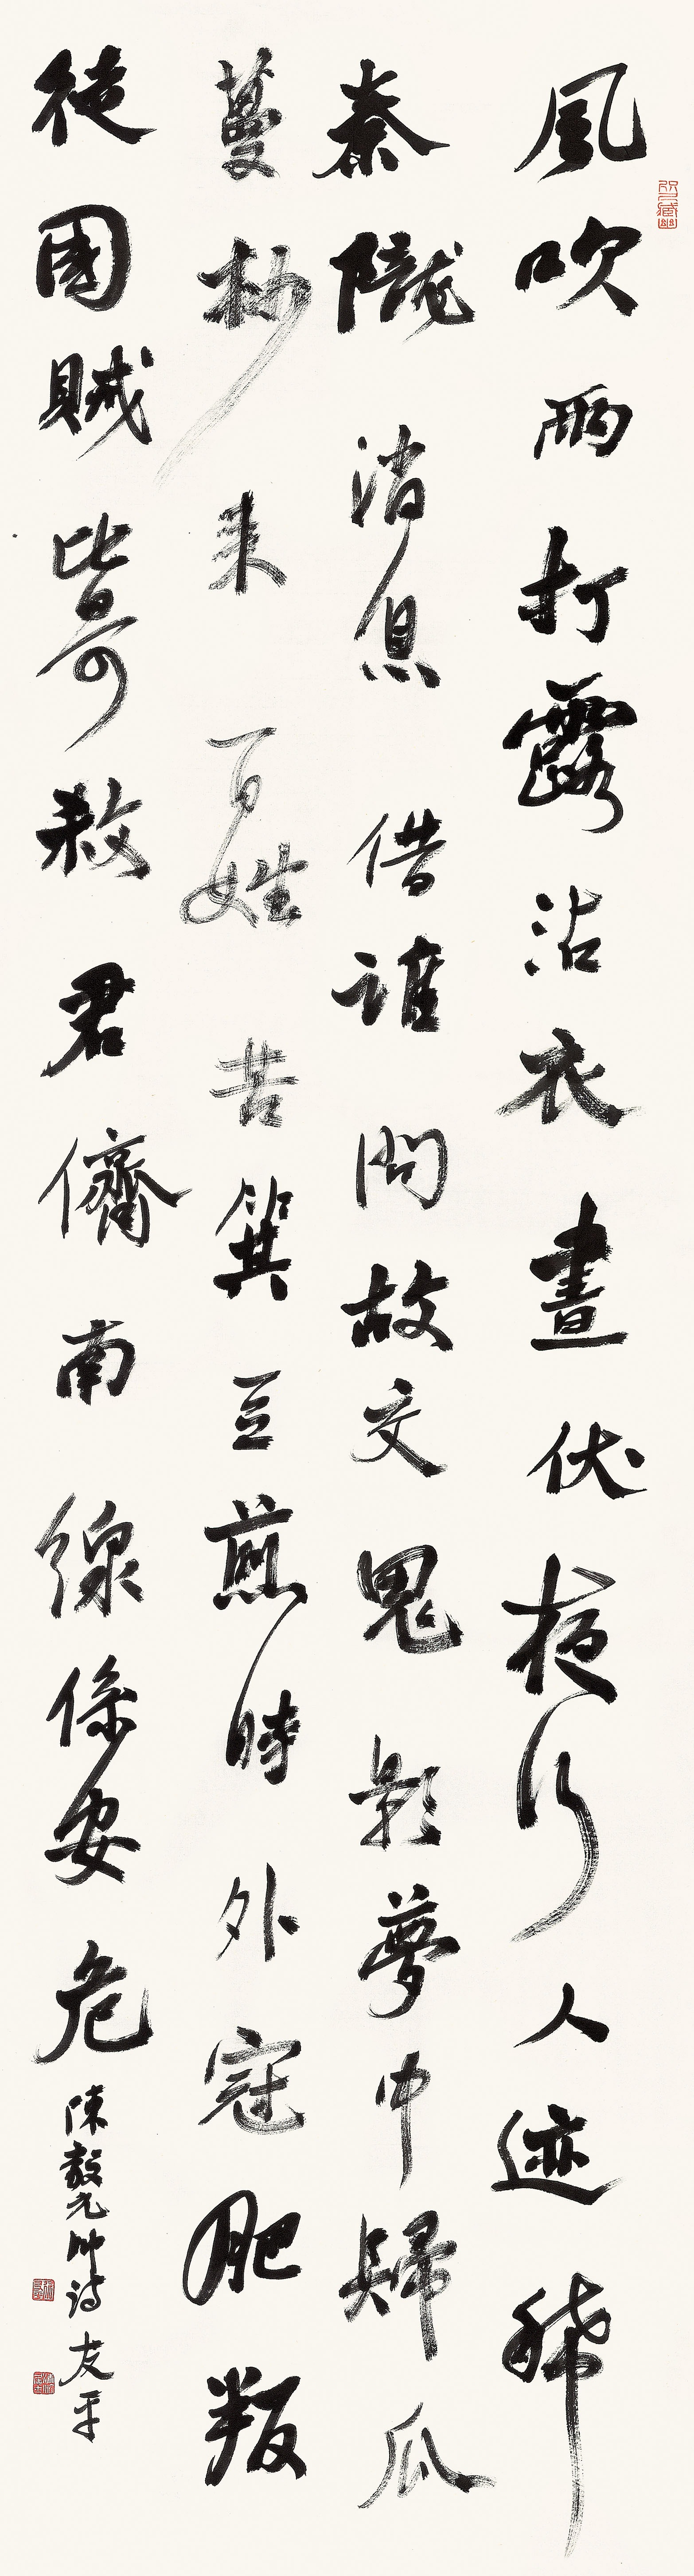 風吹雨打露沾衣晝伏夜行人迹稀
秦隴消息借誰問故交鬼影夢中歸瓜
蔓抄来百姓苦箕豆煎時外寇肥叛
徒國賊皆可殺君儕南線係安危
陳毅元帥詩 友平